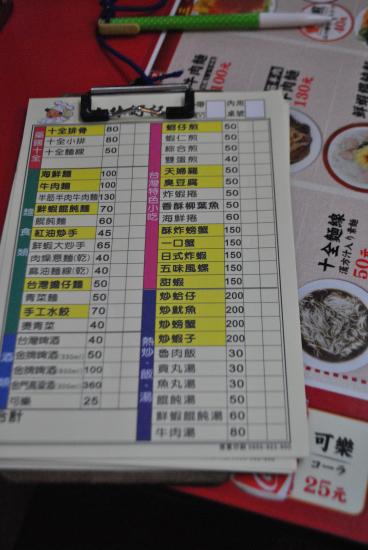 藥燉十全
十全排骨 80
十全小排 80
十全麵線 50
麵食類
海鮮麵 100
牛肉麵 100
半筋半肉牛肉麵 130
鮮蝦餛飩麵 70
餛飩麵 60
紅油炒手 45
鮮蝦大炒手 65
肉燥意麵(乾) 40
麻油麵線(乾) 40
台灣擔仔麵 50
青菜麵 50
手工水餃 70
燙青菜 40
酒類
台灣啤酒 40
金牌啤酒 50
金牌啤酒 100
金門高粱酒 360
可樂 25
合計
台灣特色小吃
蚵仔煎 50
蝦仁煎 50
綜合煎 50
雙蛋煎 40
天婦羅 50
臭豆腐 50
炸蝦捲 50
香酥柳葉魚 50
海鮮捲 60
酥炸螃蟹 150
一口蟹 150
日式炸蝦 150
五味風螺 150
甜蝦 150
熱炒・飯・湯
炒蛤仔 200
炒魷魚 200
炒螃蟹 200
炒蝦子 200
魯肉飯 30
貢丸湯 30
魚丸湯 30
餛飩湯 50
鮮蝦餛飩湯 60
牛肉湯 80
內用
桌號
牛肉麵
100元
130元
40元
十全麵線
漢方汁入り素麺
50元
可樂
コーラ
25元